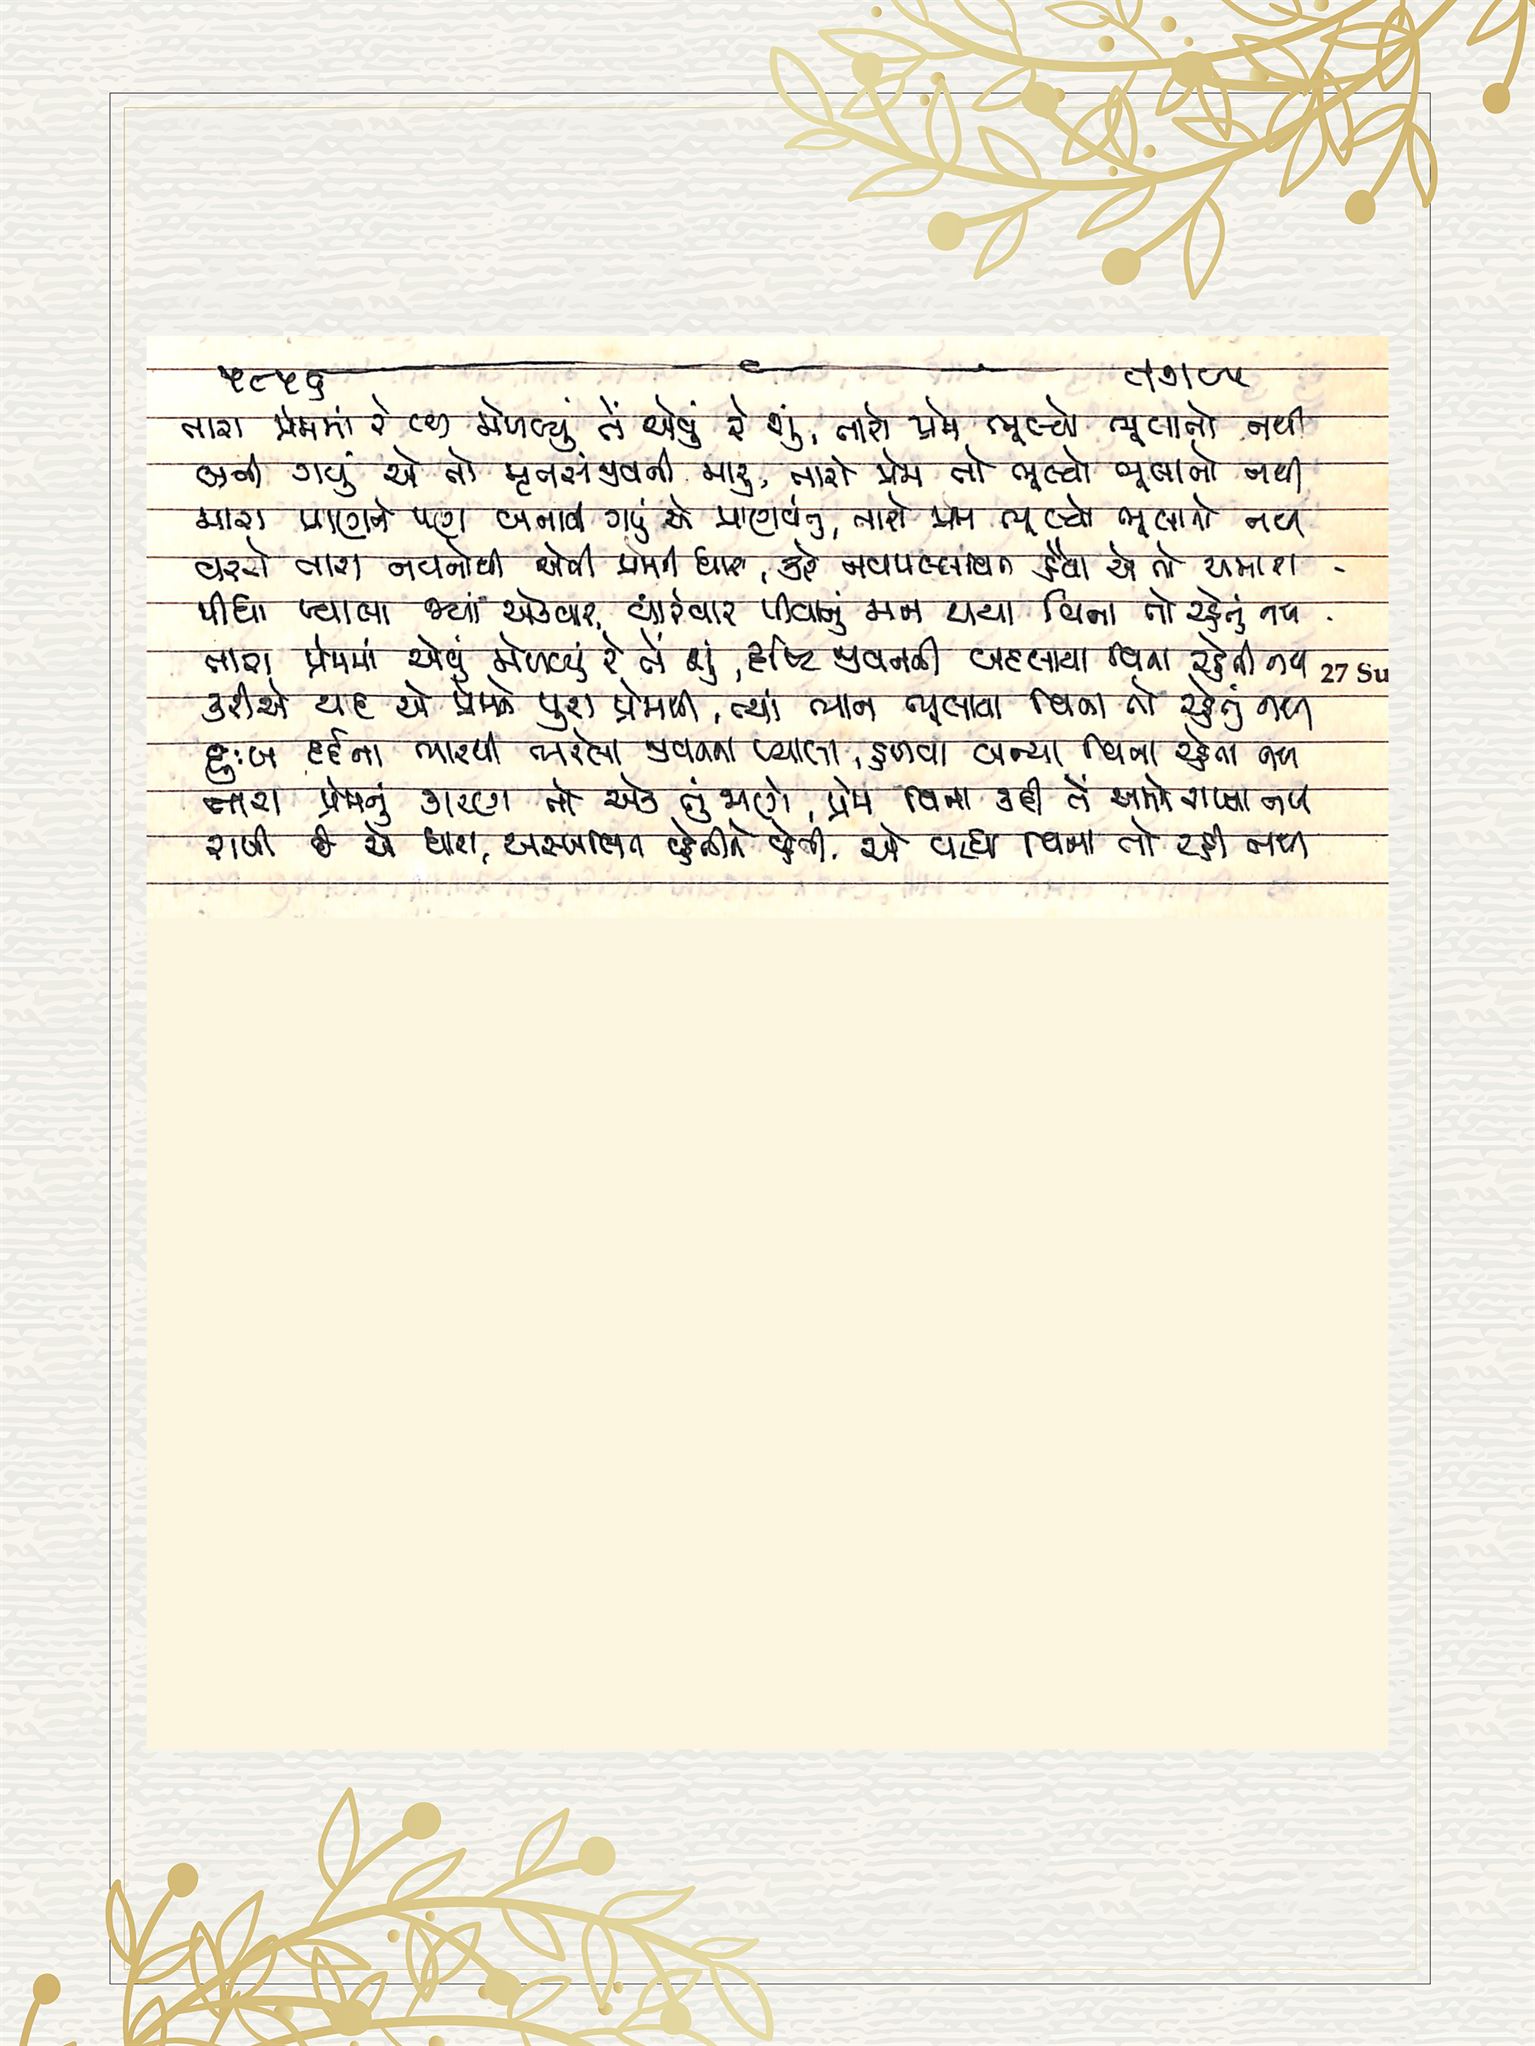 ૫૮૫૬
તારા પ્રેમમાં રે મેળવ્યું તેં એવું રે શું, તારો પ્રેમ ભૂલ્યો ભૂલાતો નથી
બની ગયું એ તો મૃતસંજીવની મારુ, તારો પ્રેમ તો ભૂલ્યો ભૂલાતો નથી
મારા પ્રાણને પણ બનાવી ગયું એ પ્રાણવંતુ, તારો પ્રેમ ભૂલ્યો ભૂલાતો નથી
વરસે તારા નયનોથી એવી પ્રેમની ધારા, કરે નવપલ્લવિત હૈયા એ તો અમારા -
પીધા પ્યાલા જ્યાં એકવાર, વારંવાર પીવાનું મન થયા વિના તો રહેતું નથી .
તારા પ્રેમમાં એવું મેળવ્યું રે તેં શું, દૃષ્ટિ જીવનની બદલાયા વિના રહેતી નથી 27 Su
કરીએ યાદ એ પ્રેમને પુરા પ્રેમથી, ત્યાં ભાન ભૂલાયા વિના તો રહેતું નથી
દુઃખ દર્દના ભારથી ભરેલા જીવનના પ્યાલા, હળવા બન્યા વિના રહેતા નથી
તારા પ્રેમનું કારણ તો એક તું જાણે, પ્રેમ વિના કદી તેં અમને રાખ્યા નથી
રાખી છે એ ધારા, અસ્ખલિત વહેતીને વહેતી, એ વહ્યા વિના તો રહી નથી